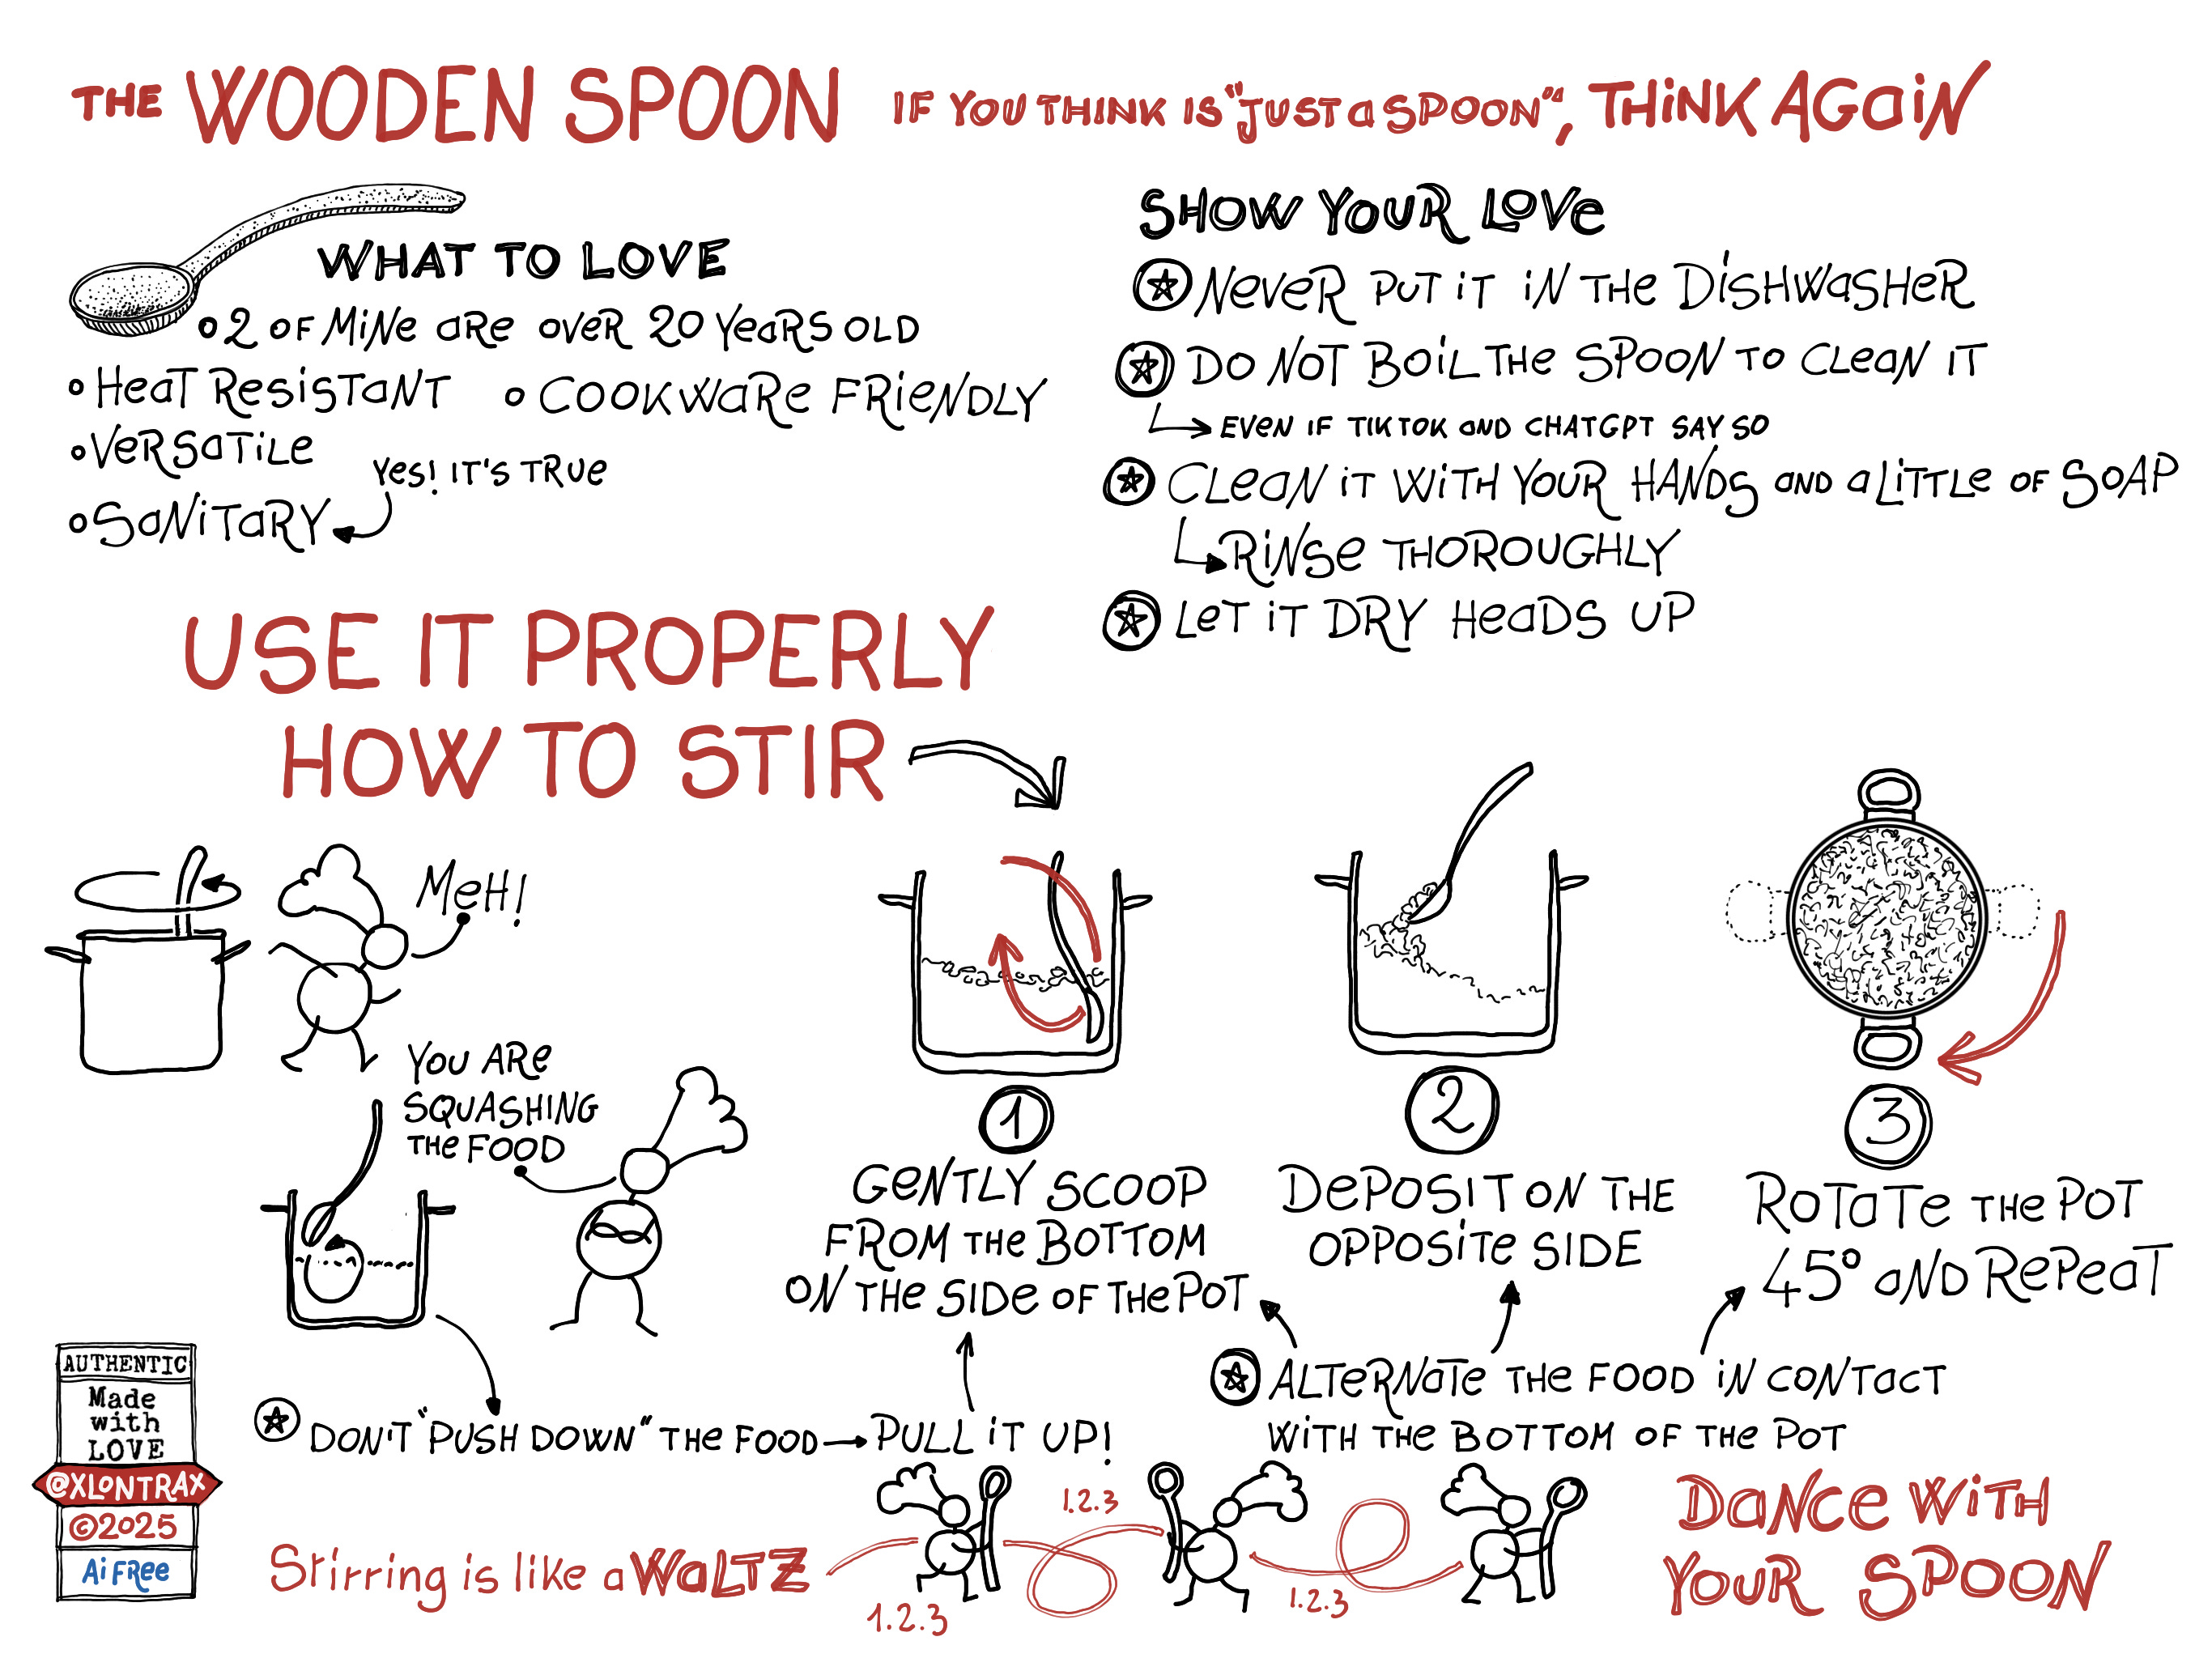 THE WOODEN SPOON IF YOU THINK IS "JUST A SPOON", THINK AGAIN
WHAT TO LOVE
2 OF MINE ARE OVER 20 YEARS OLD
HEAT RESISTANT
COOKWARE FRIENDLY
VERSATILE
YES! IT'S TRUE
SANITARY
SHOW YOUR LOVE
NEVER PUT IT IN THE DISHWASHER
DO NOT BOIL THE SPOON TO CLEAN IT
EVEN IF TIKTOK AND CHATGPT SAY SO
CLEAN IT WITH YOUR HANDS AND A LITTLE OF SOAP
RINSE THOROUGHLY
LET IT DRY HEADS UP
USE IT PROPERLY
HOW TO STIR
MEH!
YOU ARE
SQUASHING
THE FOOD
1
GENTLY SCOOP
FROM THE BOTTOM
ON THE SIDE OF THE POT
2
DEPOSIT ON THE
OPPOSITE SIDE
3
ROTATE THE POT
45° AND REPEAT
ALTERNATE THE FOOD IN CONTACT
WITH THE BOTTOM OF THE POT
DON'T "PUSH DOWN" THE FOOD → PULL IT UP!
AUTHENTIC
Made
with
LOVE
@XLONTRAX
©2025
Ai FREE
Stirring is like a WALTZ
1.2.3
1.2.3
1.2.3
DANCE WITH
YOUR SPOON